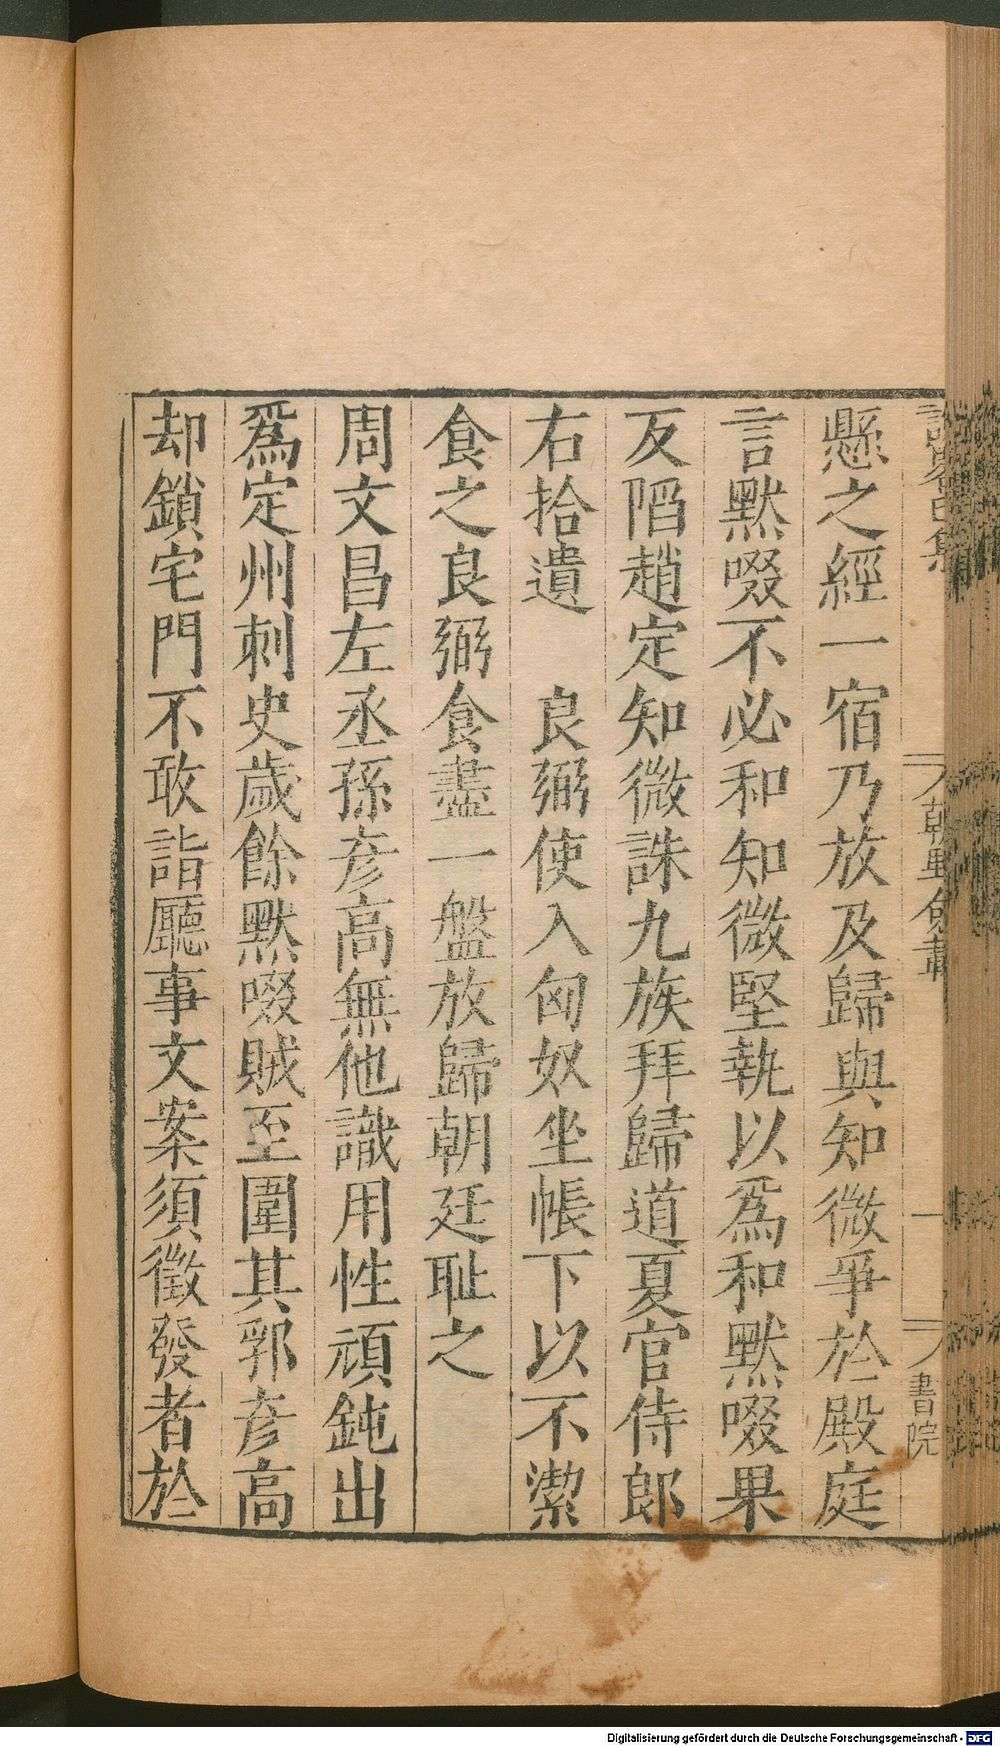 懸之經一宿乃放及歸與知微爭於殿庭
言默啜不必和知微堅執以爲和默啜果
反陷趙定知微誅九族拜歸道夏官侍郎
右拾遺　良弼使入匈奴坐帳下以不潔
食之良弼食盡一盤放歸朝廷耻之
周文昌左丞孫彥高無他識用性頑鈍出
爲定州刺史歲餘默啜賊至圍其郛彥高
却鎖宅門不敢詣廳事文案須徵發者於
書院
Digitalisierung gefördert durch die Deutsche Forschungsgemeinschaft - DFG